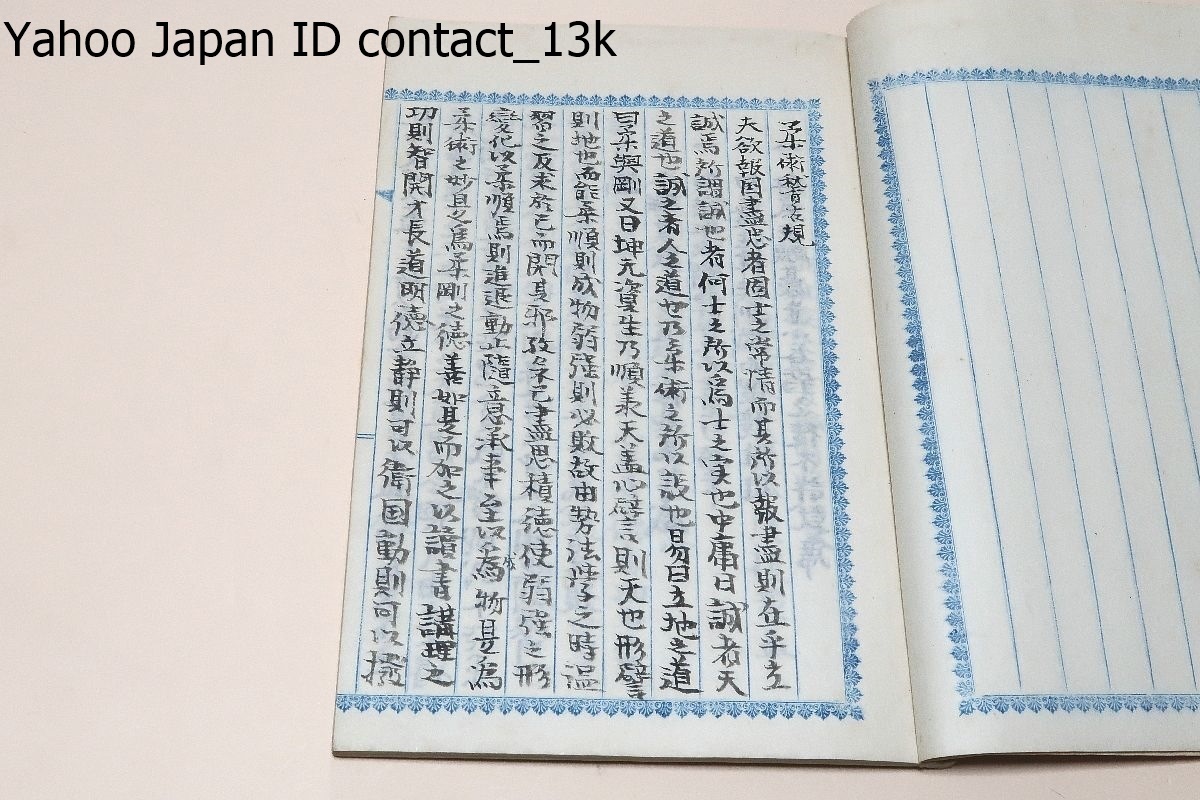 Yahoo Japan ID contact_13k
柔術稽古規
夫欲報国盡忠者固士之常情而其所以報盡則在乎立
誠焉所謂誠也者何士之所以為士之実也中庸曰誠者天
之道也誠之者人之道也乃柔術之所以設也易曰立地之道
曰柔與剛又曰坤元資生乃順承天蓋心譬則天也形譬
則地也而能柔順則成物弱强則必敗故由勢法學之時温
習之反求於己而閑其邪孜々克己盡思積徳使弱强之形
變化以柔順焉則進退動止隨意承事至以為成物是為
柔術之妙且又為柔剛之徳善如是而加之以讀書講理之
功則智開才長道明徳立静則可以衛国動則可以撥